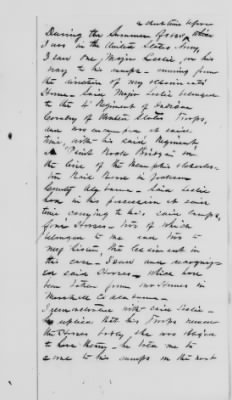 a short time before
During the Summer of 1864 when
I was in the United States Army,
I saw one, Major Leslie, on his
way to his camps - coming from
the direction of my
home - Said Major Leslie belonged
to the 4th Regiment of Indiana
Cavalry of United States Troops,
and was encamped at said
time, with his said Regiment,
at Paint Rock Bridge on
the line of the Memphis & Charles-
ton Rail Road in Jackson
County Alabama - Said Leslie
had in his possession at said
time carrying to his said camps,
four Horses - two of which
belonged to me and two to
my sister the claimant in
this case - I saw and recogniz-
ed said Horses - which had
been taken from our homes in
Marshall Co Alabama -
I remonstrated with said Leslie -
he replied that his Troops
the Horses badly she was obliged
to have them, he told me to
come to his camps in the next